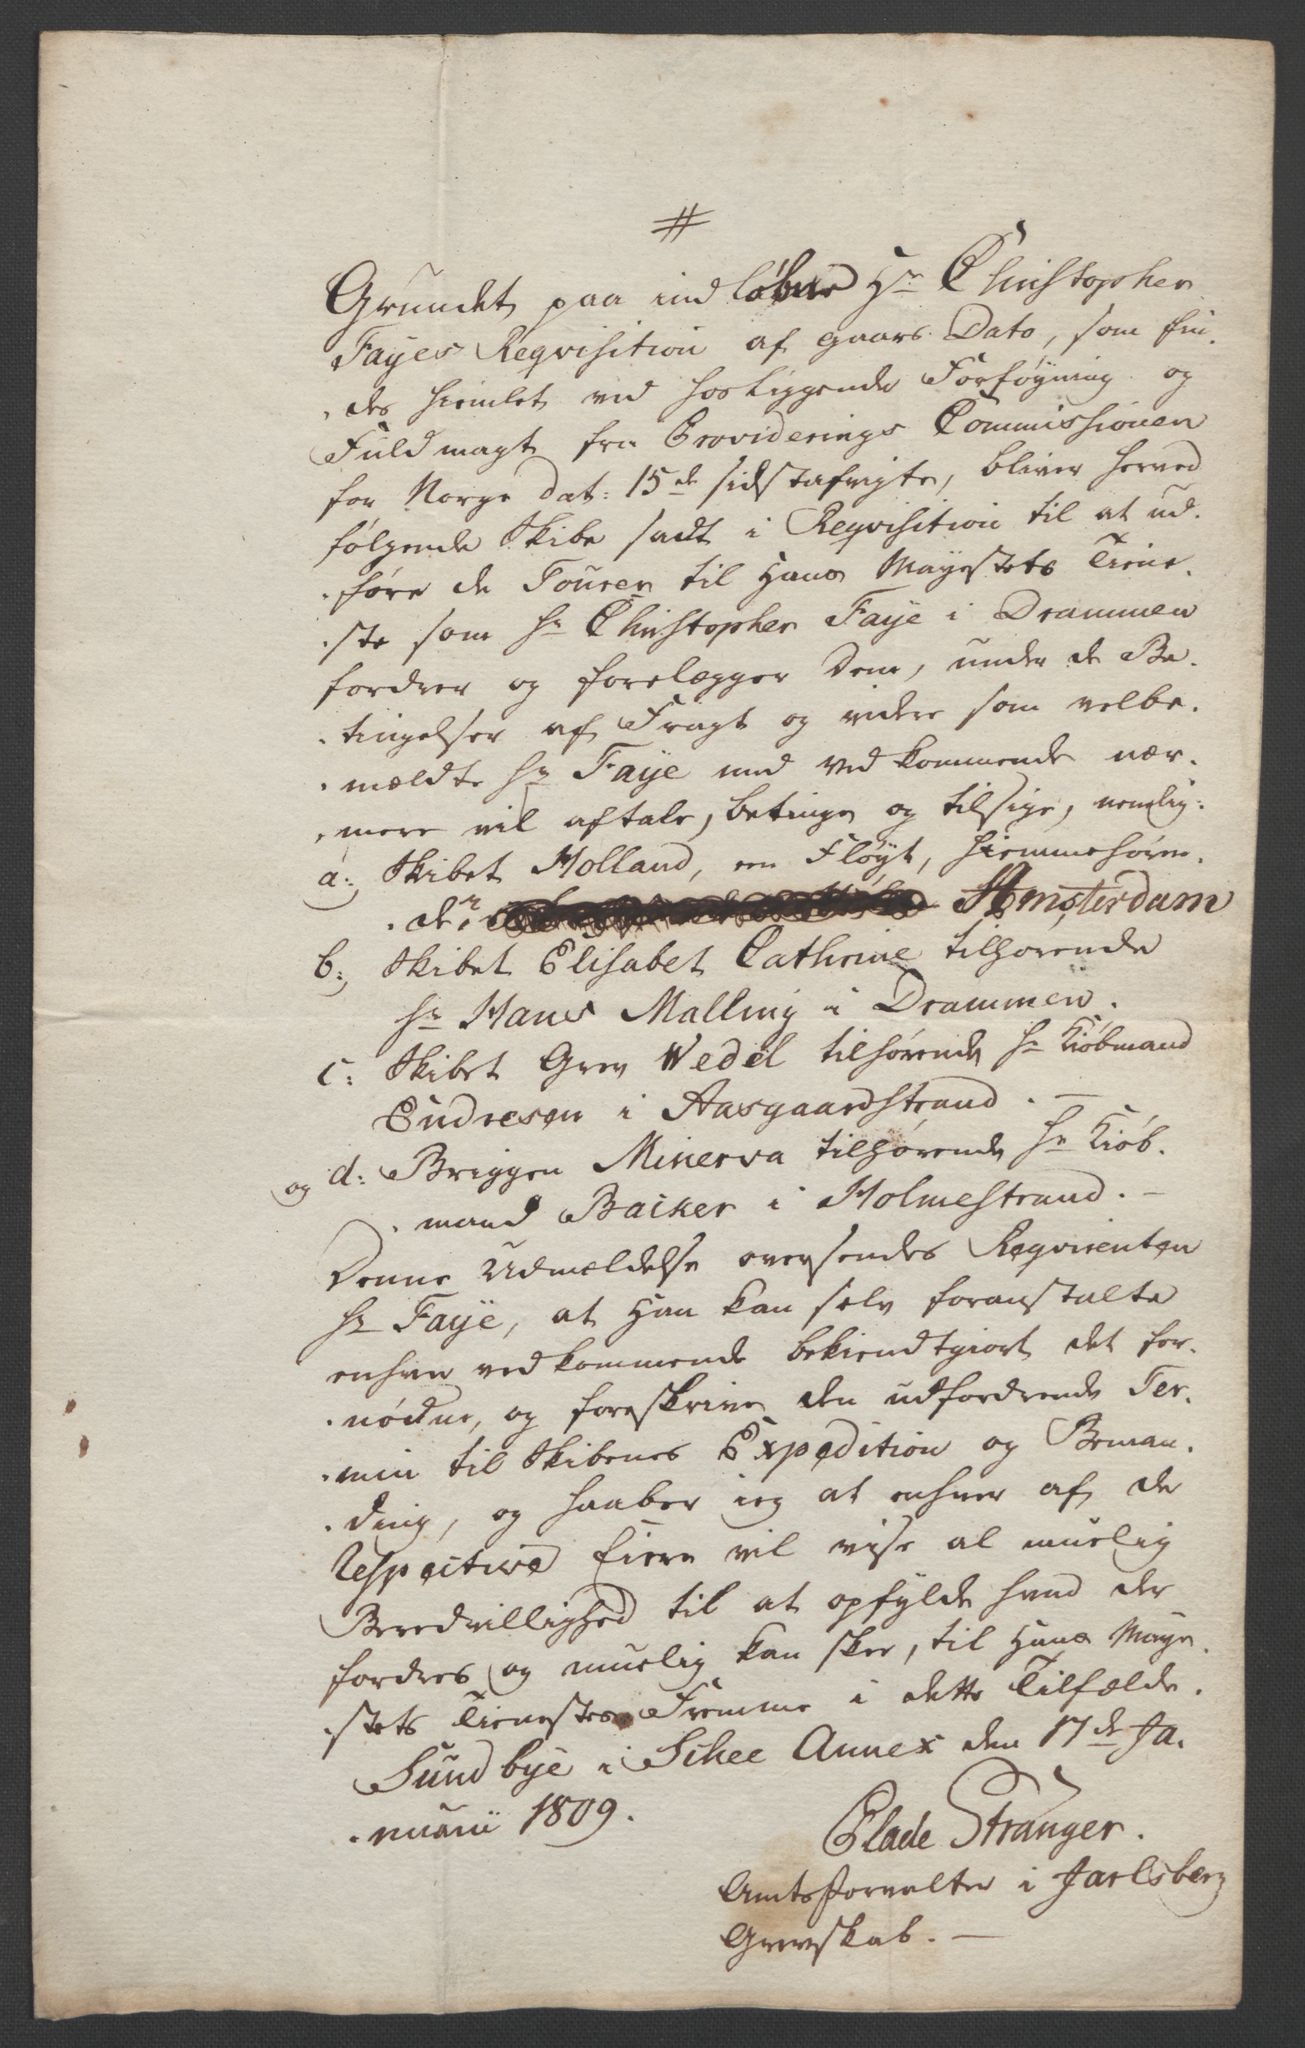 #
Grundet paa indløbne Hr Christopher
Fayes Reqvisition af gaars Dato, som fin-
-des hiemlet ved hosliggende Forføyning og
Fuldmagt fra Provideerings Commissionen
for Norge dat: 15de sidstafvigte, bliver herved
følgende Skibe sadt i Reqvisition til at ud-
-føre de Tourer til Hans Mayestets Tiene-
-ste som Hr Christopher Faye i Drammen
fordrer og forelægger dem, under de Be-
-tingelser af Fragt og videre som velbe-
-mældte Hr Faye med Vedkommende nær-
-mere vil aftale, betinge og tilsige, nemlig:
a: Skibet Holland, en Fløyt, hiemmehøren-
-de i Amsterdam
b: Skibet Elisabet Cathrine tilhørende
Hr Hans Malling i Drammen.
c: Skibet Grev Wedel tilhørende Hr Kiøbmand
Endresen i Aasgaardstrand. —
og d: Briggen Minerva tilhørende Hr Kiøb-
-mand Backer i Holmestrand. —
Denne Udmeldelse oversendes Reqvirenten
Hr Faye, at Han kan selv foranstalte
enhver vedkommende bekiendtgiort det for-
-nødne, og foreskrive den udfordrende Ter-
-min til Skibenes Expedition og Beman-
-ding, og haaber ieg at enhver af de
Respective Eiere vil vise al muelig
Beredvillighed til at opfylde hvad der
fordres og muelig kan skee, til Hans Maye-
-stets Tienestes Fremme i dette Tilfælde.
Sundbye i Schee Annex den 17de Ja-
-nuarii 1809.
Elade Stranger.
Amtsforvalter i Jarlsberg
Grevskab. —